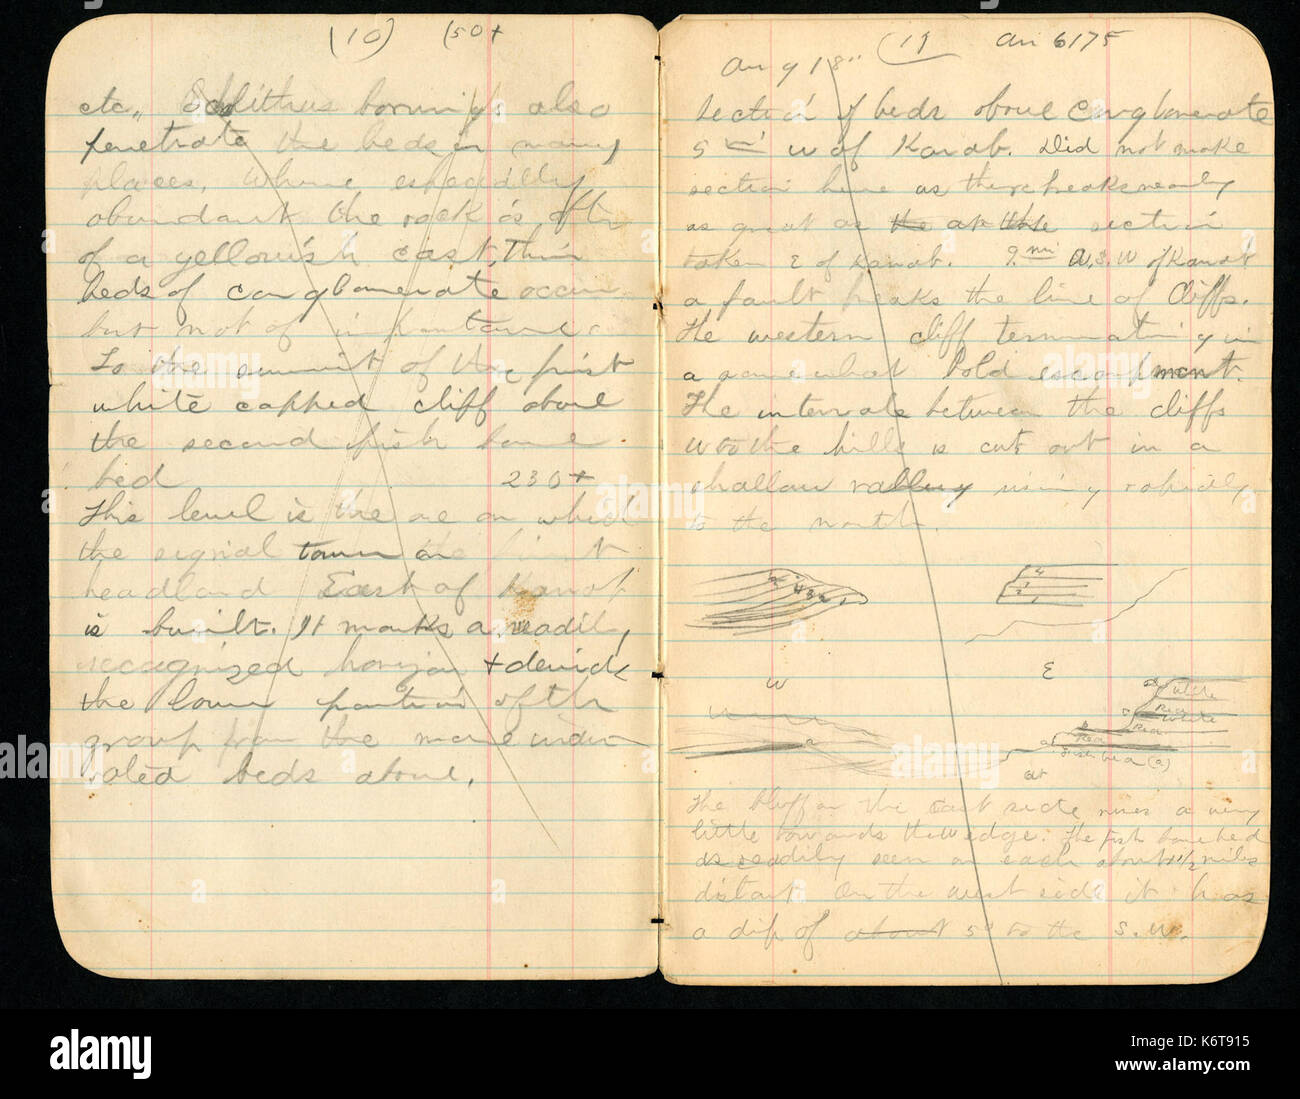 (10) (50+
etc., Scolithus borings also
penetrate the beds in many
places. Where especially
abundant the rock is often
of a yellowish cast, thin
beds of conglomerate occur
but not of importance.
To the summit of the first
white capped cliff above
the second fish bone
bed 230+
This level is the one on which
the signal tower on the first
headland East of Kanab
is built. It marks a readily
recognized horizon + divides
the lower portion of the
group from the more indu
rated beds above.
(11) An 6175
Aug 18"
Section of beds above Conglomerate
5 mi W of Kanab. Did not make
section here as there breaks nearly
as great as the at the section
taken E of Kanab. 9 mi W.S.W of Kanab
a fault breaks the line of Cliffs.
The western cliff terminating in
a somewhat bold escarpment.
The intervale between the cliffs
W to the hills is cut out in a
shallow valley rising rapidly
to the north.
4 3 2 1
4
2 1
W E
d White
Red
c White
b Red
Red
a a Fish bed (a)
The bluff on the East side rises a very
little towards the W edge. The Fish bone bed
is readily seen on each about 1 1/2 miles
distant On the west side it has
a dip of about 5° to the S.W.
alamy
alamy
Image ID: K6T915
www.alamy.com